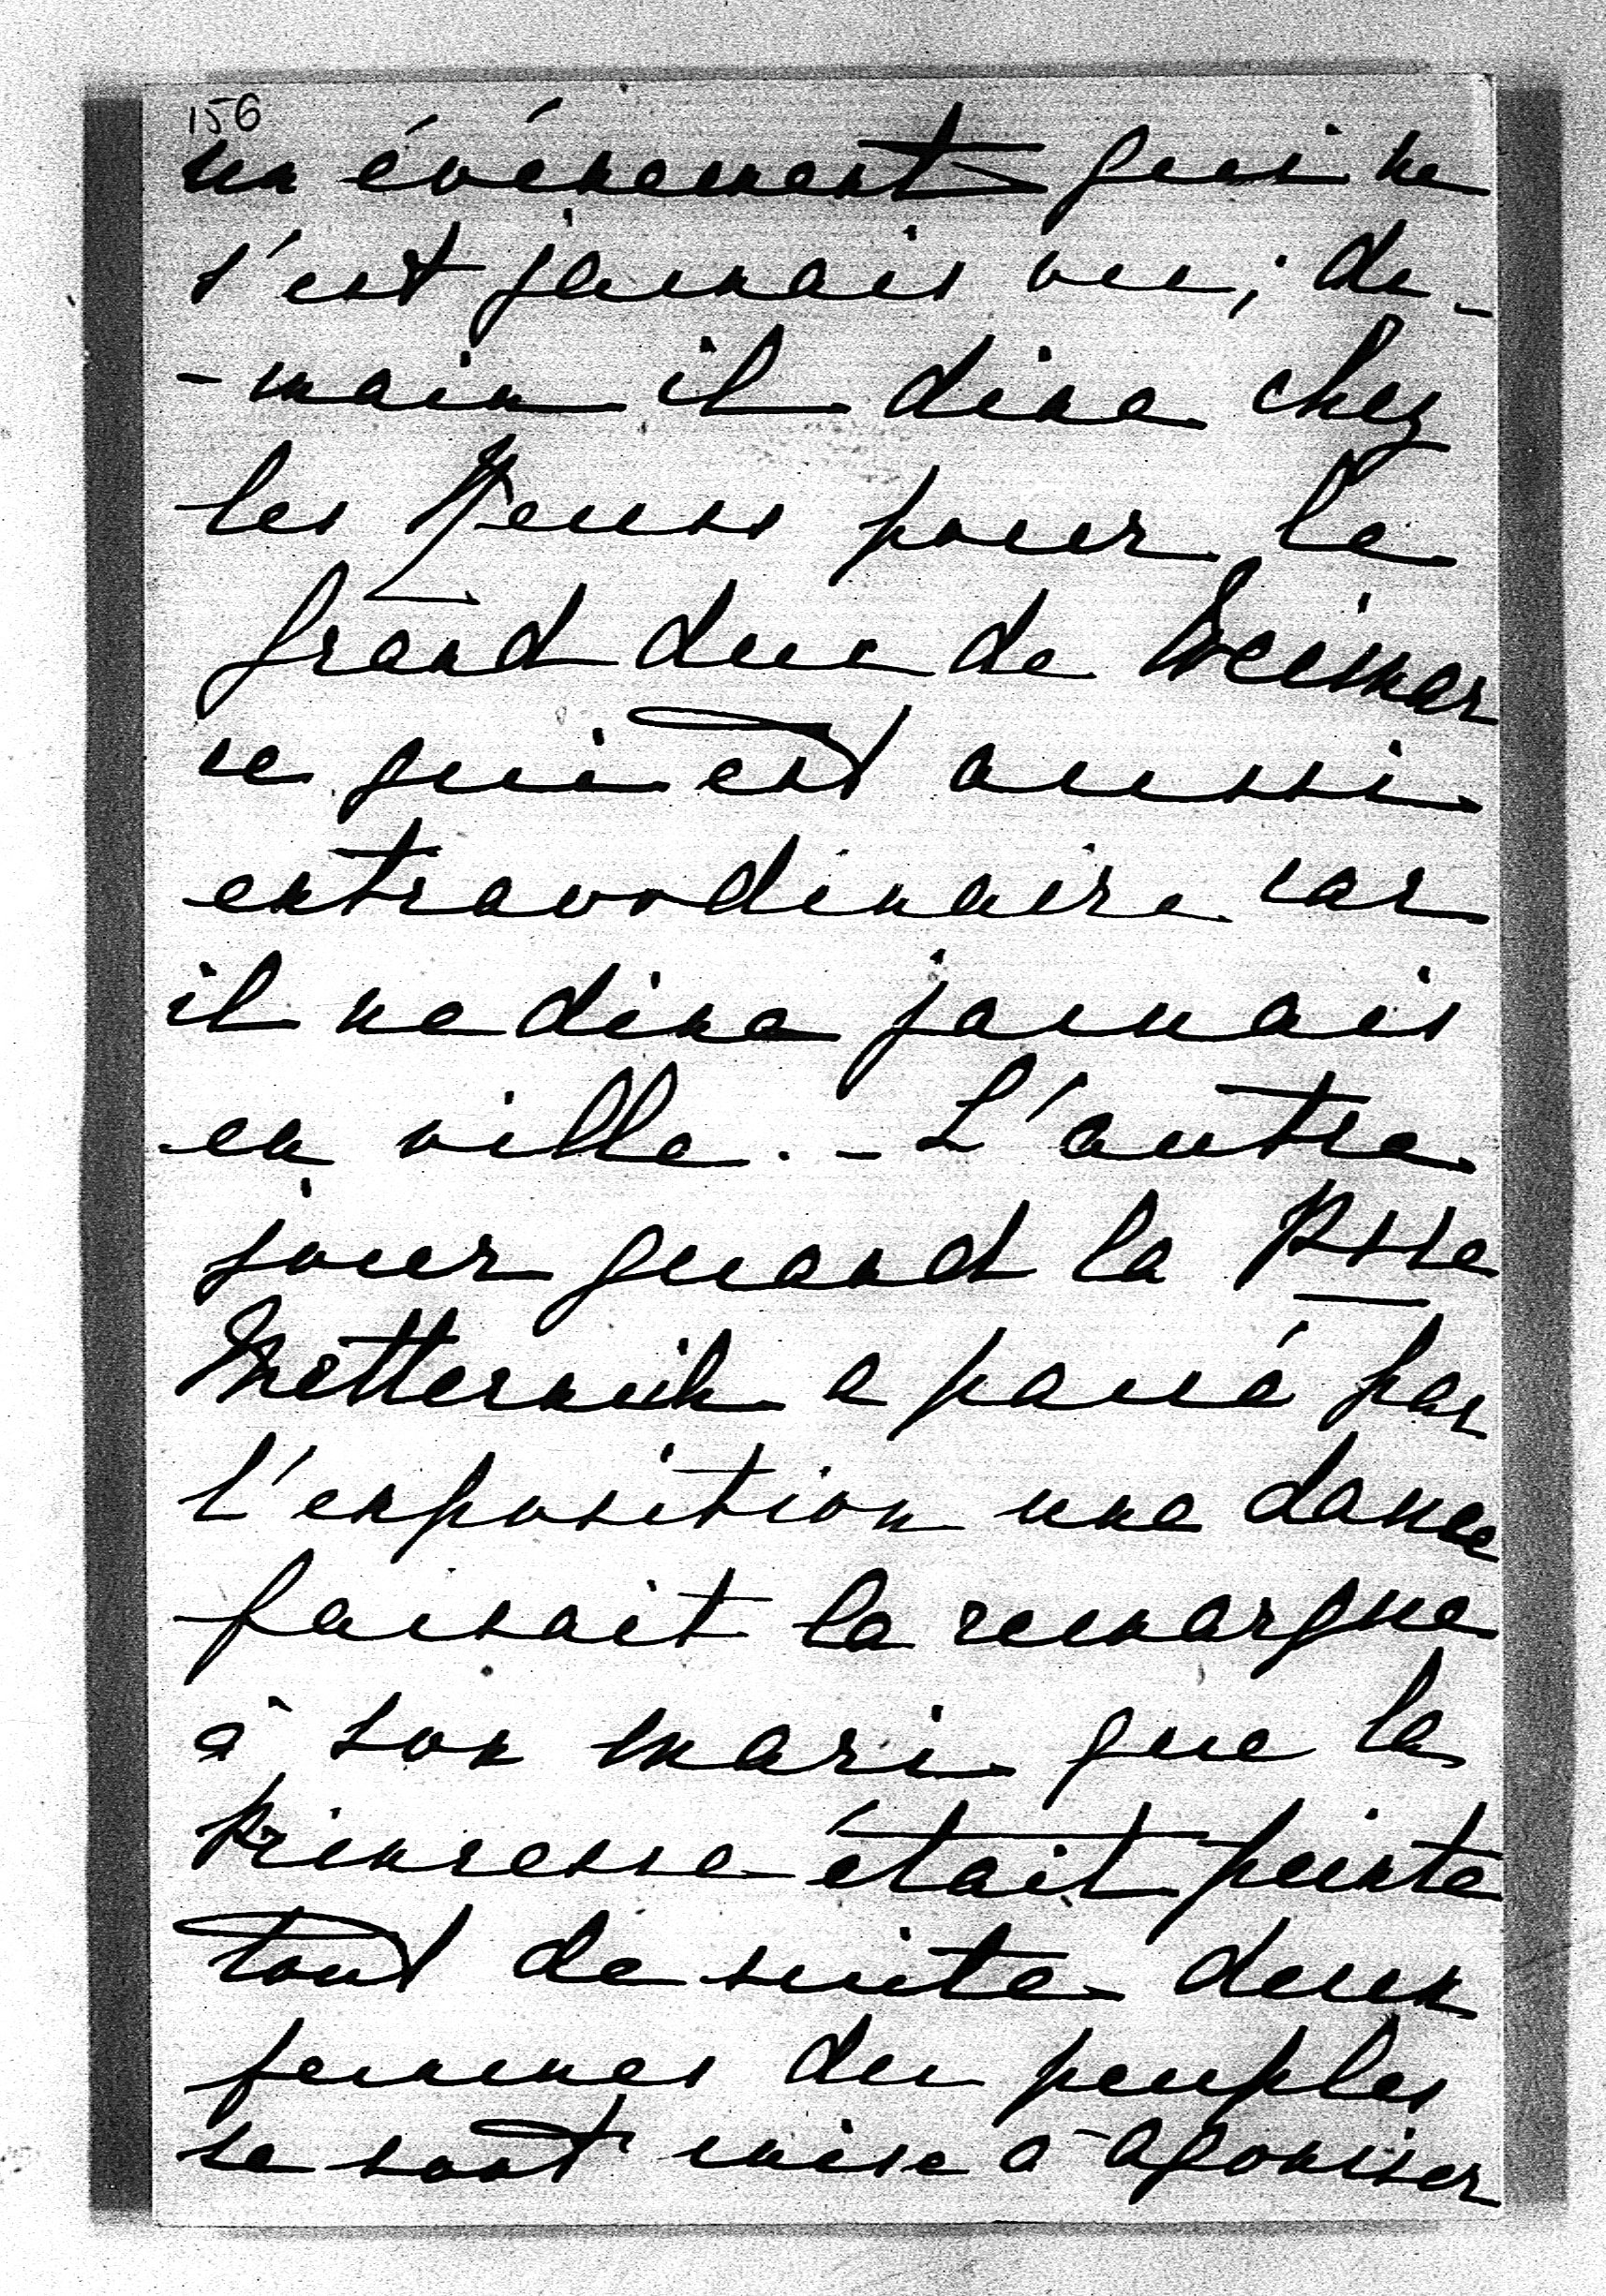 156
un événement qui ne
s'est jamais vu; de-
-main il dine chez
les Reuss pour le
grand duc de Weimar
ce qui est aussi
extraordinaire car
il ne dine jamais
en ville. - L'autre
jour quand la Psse
Metternich a passé par
l'exposition une dame
faisait la remarque
à son mari que la
Princesse était peinte
tout de suite deux
femmes du peuples
se sont mise à agoniser